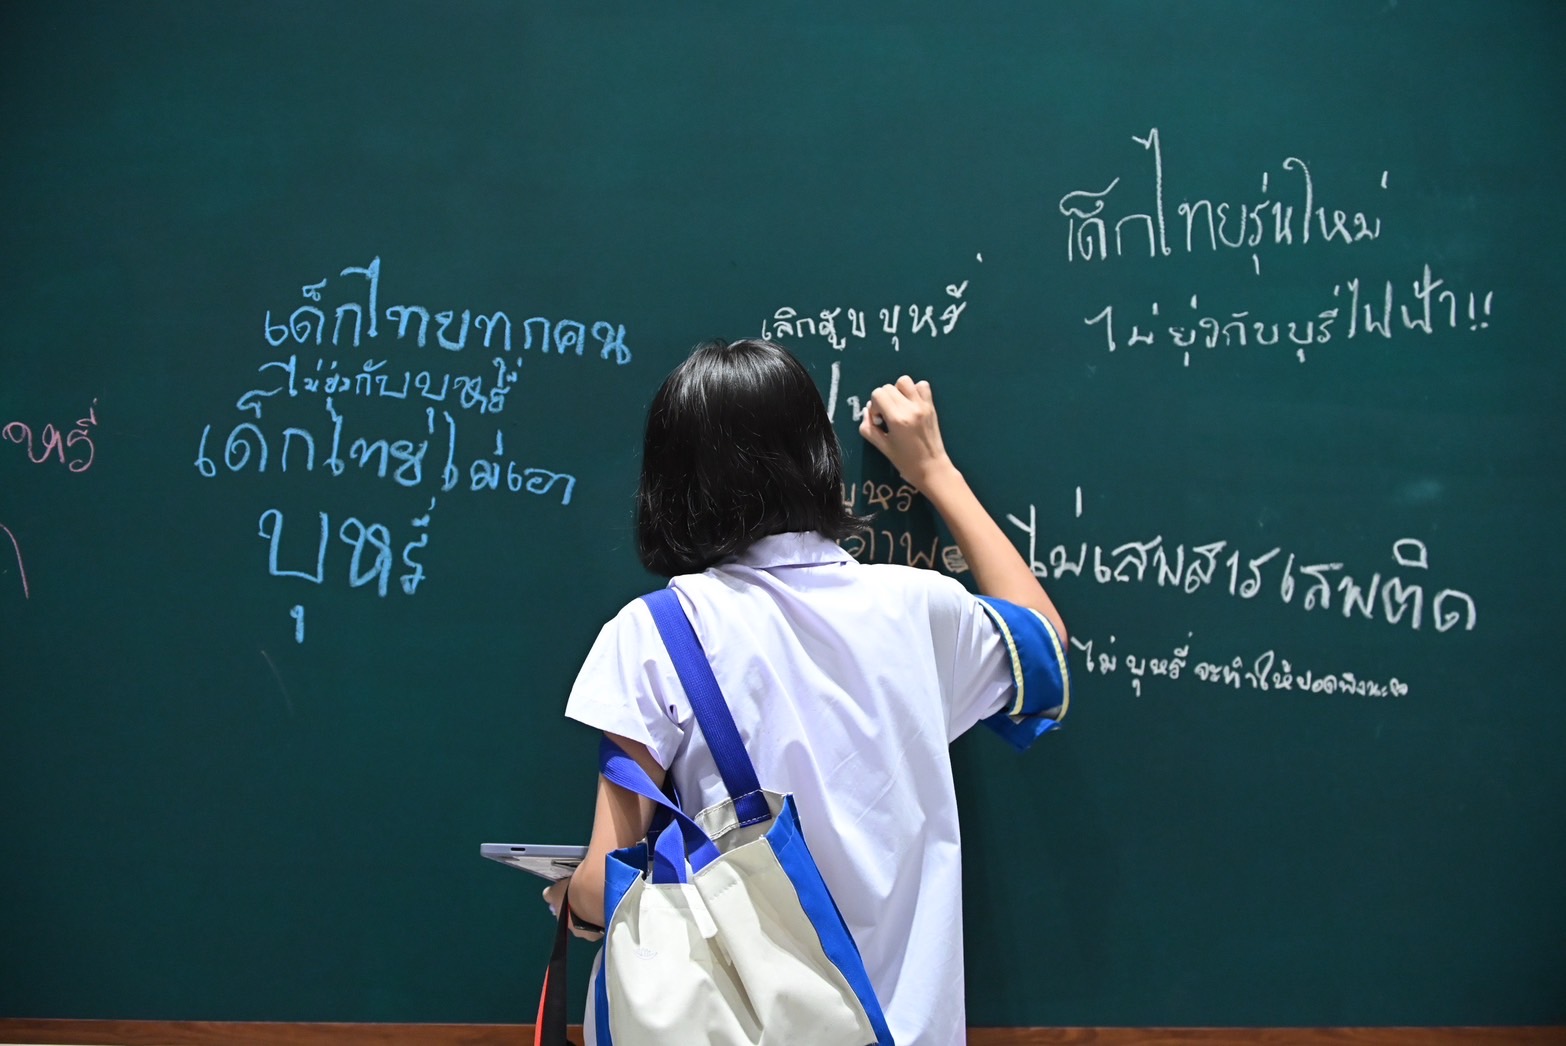 หรี่
เด็กไทยทุกคน
ไม่ยุ่งกับบุหรี่
เด็กไทยไม่เอา
บุหรี่
เลิกสูบบุหรี่
บุหรี่
เด็กไทยรุ่นใหม่
ไม่ยุ่งกับบุรี่ไฟฟ้า!!
ไม่เสพสารเสพติด
ไม่บุหรี่จะทำให้ปอดพังนะ